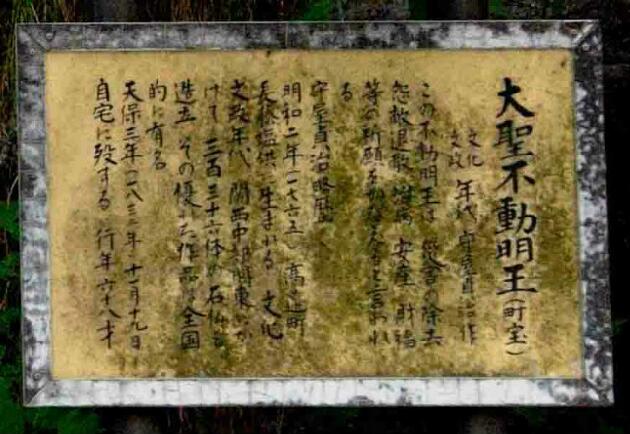 大聖不動明王(町宝)
文化
文政 年代 守屋貞治作
この不動明王は 災害の除去
怨敵退散 増益 安産 財福
等の祈願を 言われ
る
守屋貞治略歴
明和二年(一七六五) 高遠町
長藤塩供に生まれる 文化
文政年代 関西中部関東にか
けて 三百三十六体の石仏を
造立 その優れた作品は全国
的に有名
天保三年(一八三二)年 十一月十九日
自宅に歿する 行年六十八才